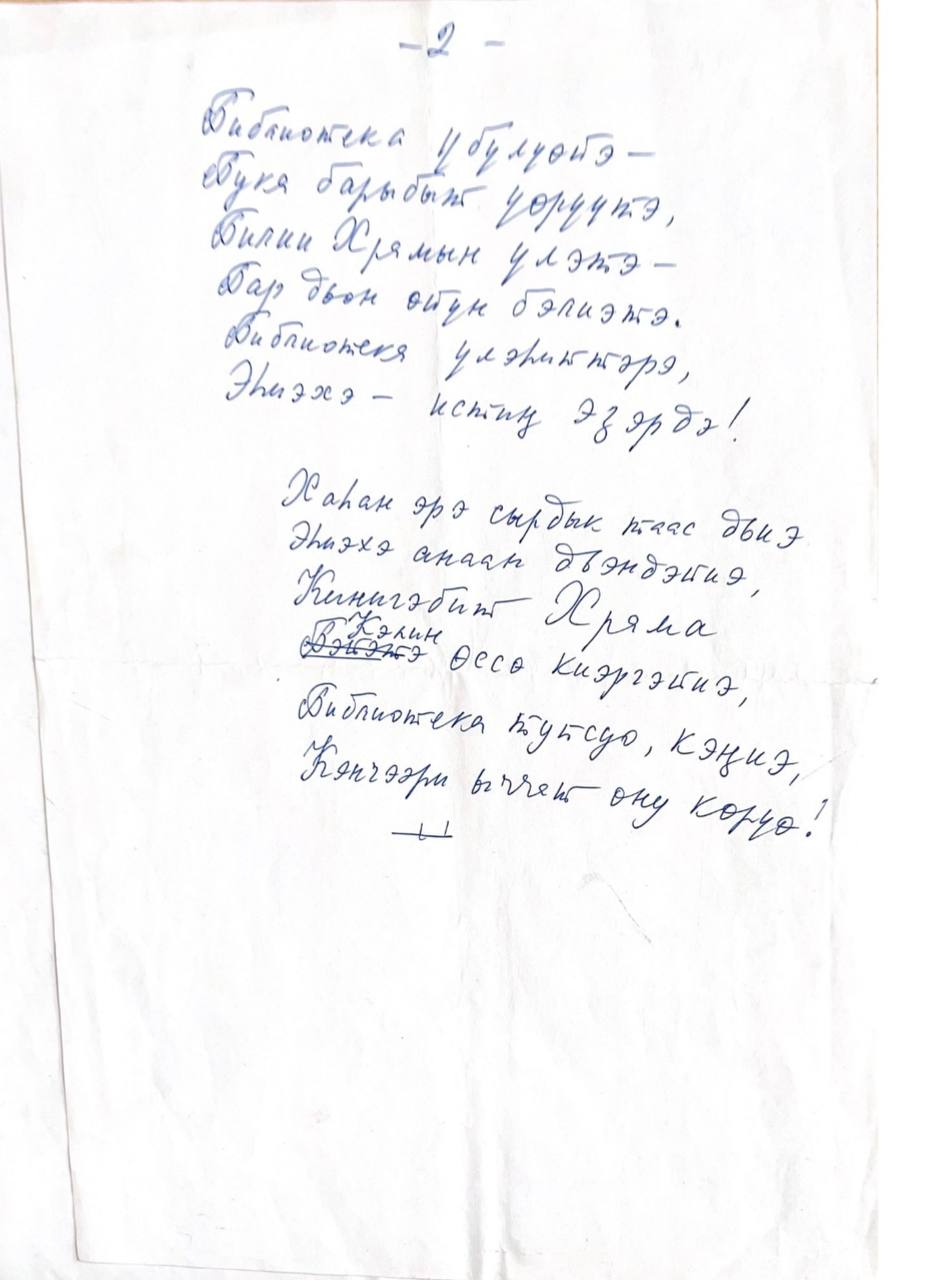 - 2 -
Библиотека үбүлүөтэ –
Бука барыбыт үөрүүтэ,
Билии Храмын үлэтэ –
Бар дьон өйүн бэлиэтэ.
Библиотека үлэһиттэрэ,
Эһиэхэ – истиҥ эҕэрдэ!
Хаһан эрэ сырдык таас дьиэ
Эһиэхэ анаан дьэндэйиэ,
Кинигэбит Храма
Кэлин
Бэйэтэ өссө киэргэйиэ,
Библиотека тупсуо, кэҥиэ,
Кэнчээри ыччат ону көрүө!